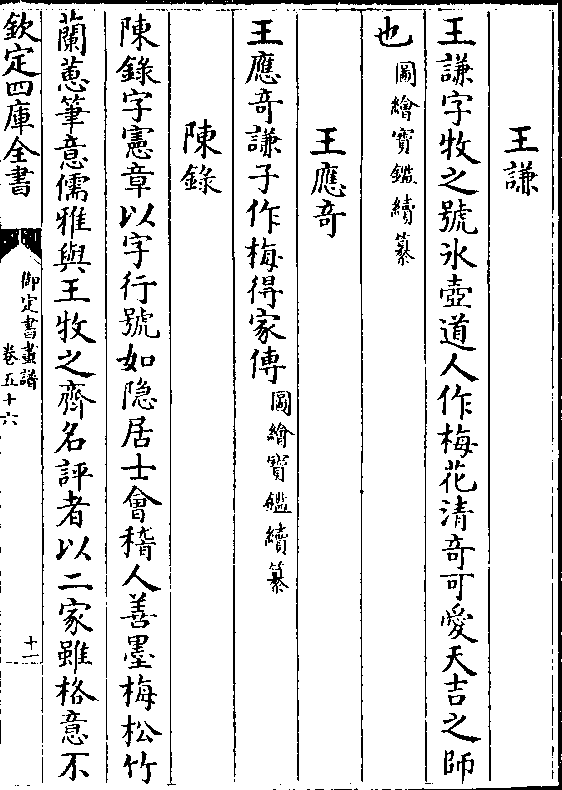 王謙
王謙字牧之號氷壺道人作梅花清竒可愛天吉之師
也圖繪寶鑑續纂
王應竒
王應竒謙子作梅得家傳圖繪寶鑑續纂
陳錄
陳錄字憲章以字行號如隐居士會稽人善墨梅松竹
蘭蕙筆意儒雅與王牧之齊名評者以二家雖格意不
欽定四庫全書
御定書畫譜
卷五十六
十一